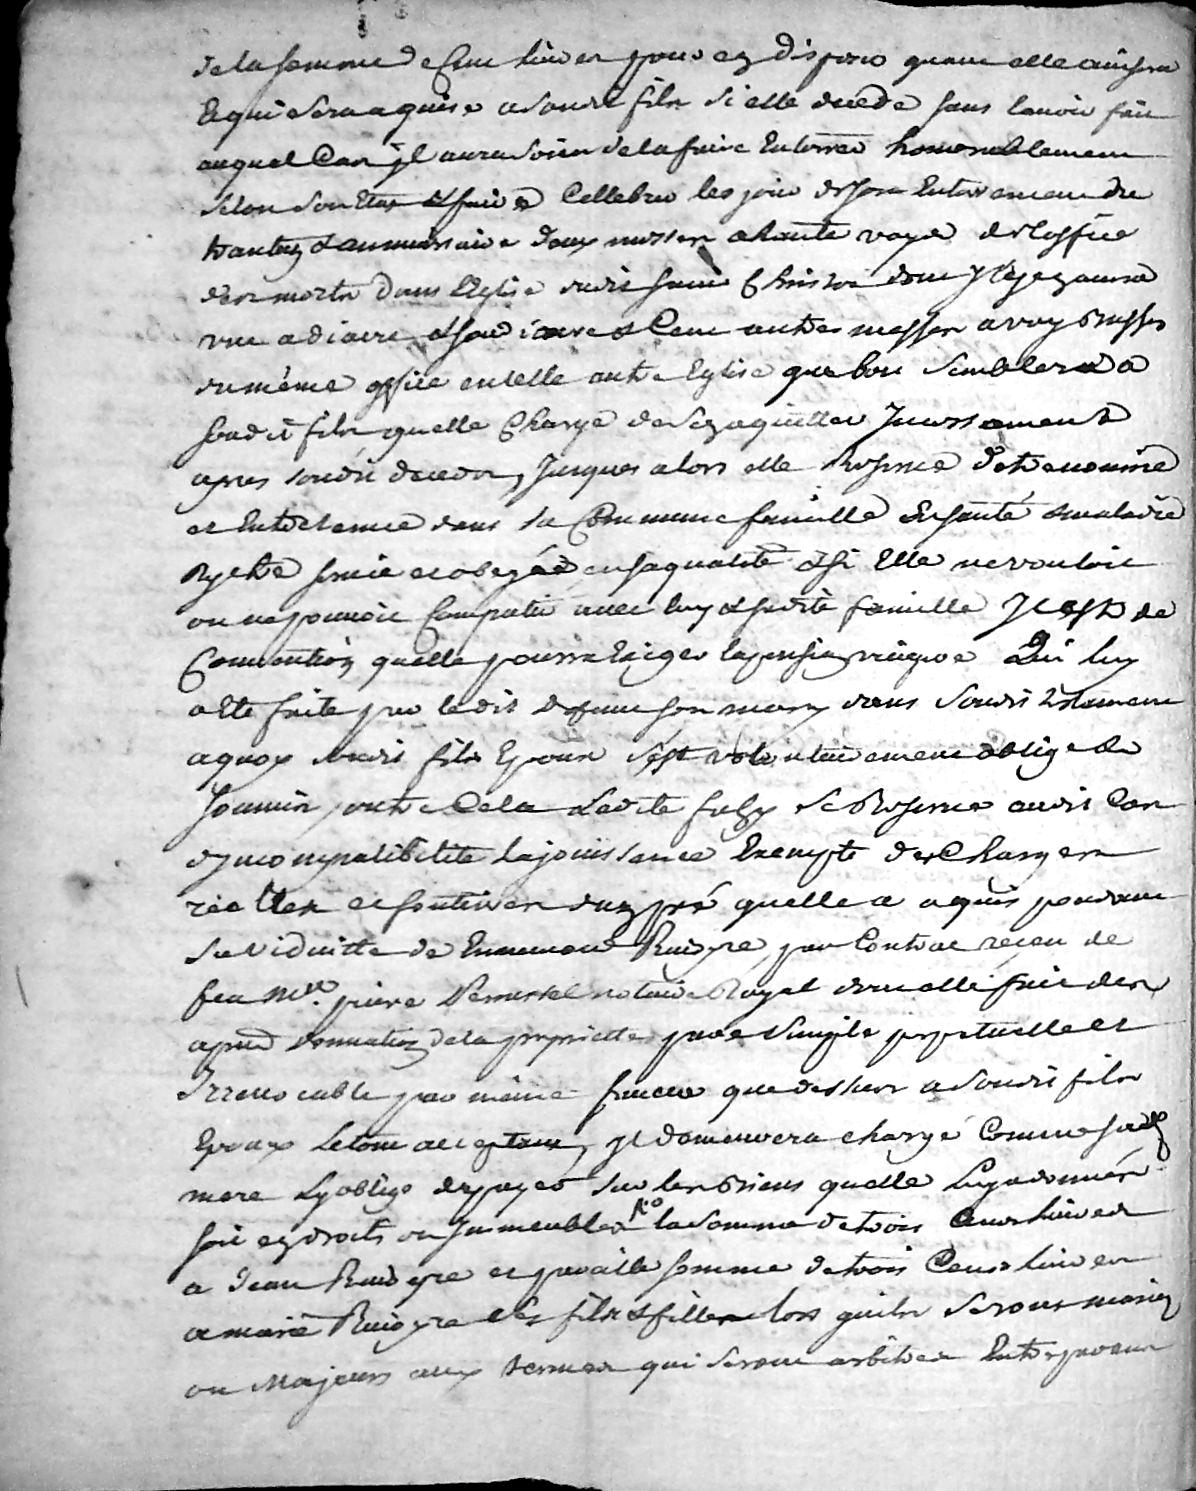 de la somme de cent livres pour en disposer quant elle avisera
Et qui sera aquise a sondit fils si elle decede sans lavoir fait
auquel Cas jl aura soin de la faire Enterrer honnorablement
selon son Etat & faire Cellebrer les jour de son Enterrement du
trantin & annuersaire deux messes a haute voye de Loffice
des morts dans Leglise dudit saint Christo dont
une a diacre & soudiacre & Cent autres messes a voy basses
du même office en telle autre Eglise que bon semblera a
sondit fils quelle Charge de sen aquitter
apres soudit deceds, Jusques alors elle reserve detre nourrie
et Entretenue dans sa Commune famille En santé & maladie
dy etre servie et obeyée en sa qualité & si Elle ne vouloit
ou ne pouvoit Compatir avec luy & sadite famille Jl est de
Convention quelle pourra Exiger la pension viagere Qui luy
a Eté faite par ledit defunt son mary dans soudit testament
a quoy soudit fils Epoux sest volontairement obligé de
fournir, outre Cela Ladite se Reserve audit Cas
dyncompatibilité La jouissance Exempte de Charges
réelles et foncieres dun pré quelle a aquis pendant
sa viduitte de Rivoyre par Contrat reçeu de
feu Me. piere notaire Royal dont elle fait des
apres donnation de la proprietté pure simple perpetuelle et
Jrrevocable par même faveur que dessus a soudit fils
Epoux Letout acceptant, jl demeurera chargé Comme sadte
mere Ly oblige de payer sur les Biens quelle Luy a donnés
soit en droits ou Jmmeubles la somme de trois Cents livres
a Jean Rivoyre et pareille somme de trois Cents livres
a marie Rivoyre ses fils & filles lors quils seront mariez
ou Majeurs aux termes qui seront arbitres Entre parens